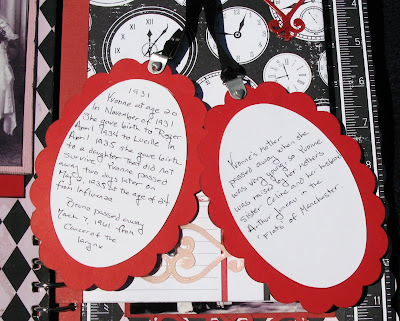 1931
Yvonne at age 20
In November of 1931
She gave birth to Roger
April 1934 to Lucille In
April 1935 she gave birth
to a daughter that did not
survive. Yvonne passed
away two days later on
1935 at the age of 24
from Influenza
Bruno passed away
1961 from
Cancer of the
larynx
Yvonne's Mother
passed away when she
was very young so Yvonne
was raised by her mothers
sister Celina and her husband
Arthur in the
Flats of Manchester.